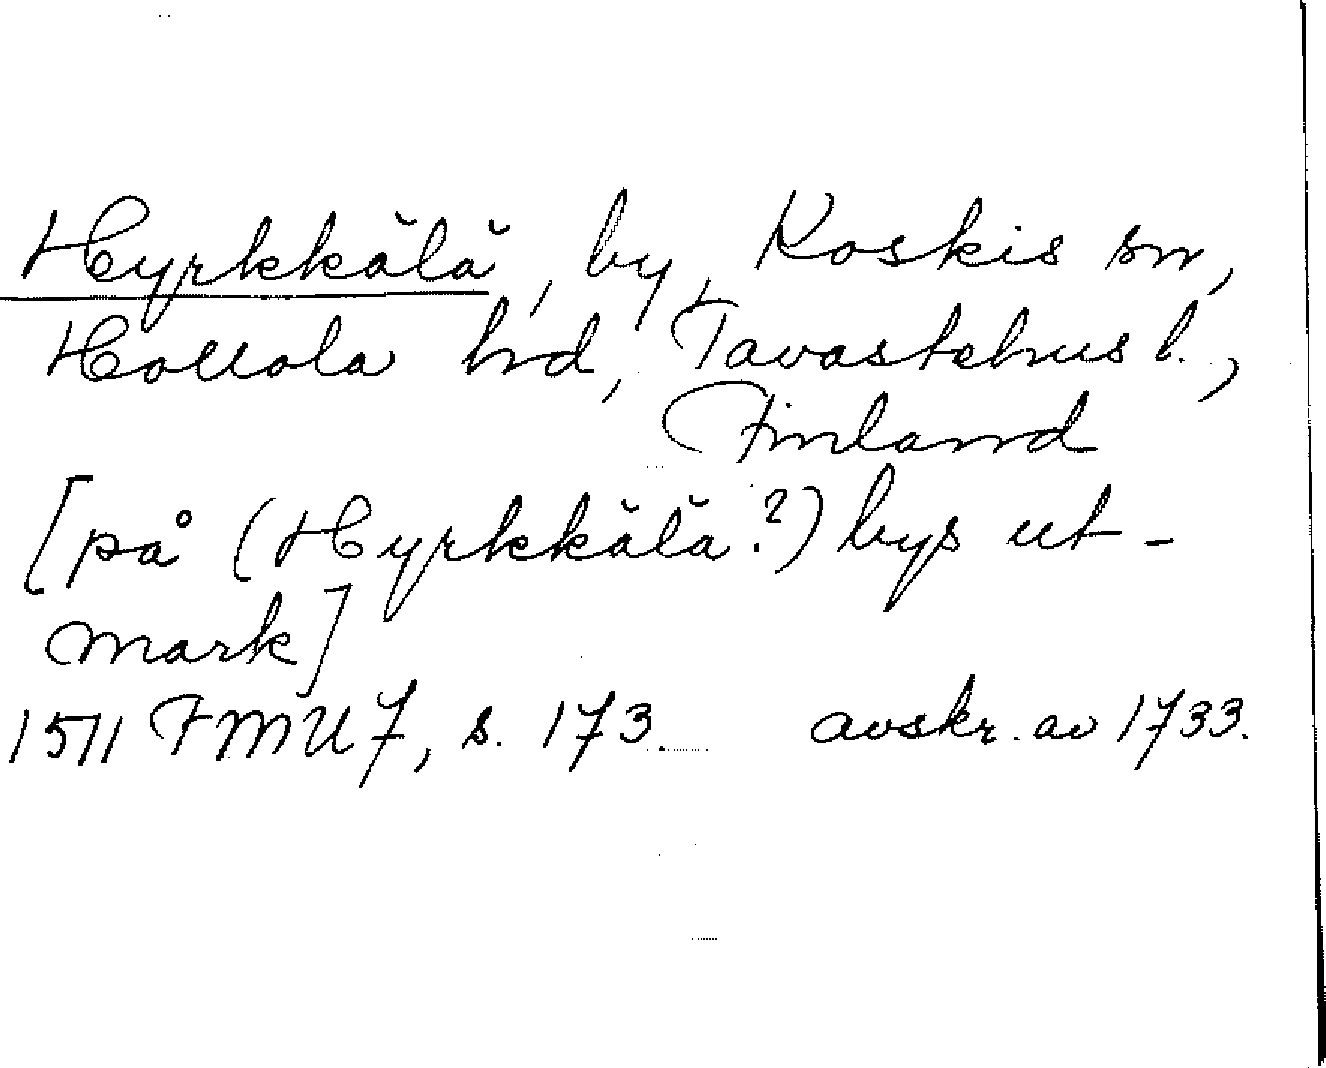 Hyrkkälä, by, Koskis sn,
Hollola hd, Tavastehus l.,
Finland
[på (Hyrkkälä?) bys ut-
mark]
1511 FMU 7, s. 173. avskr. av 1733.